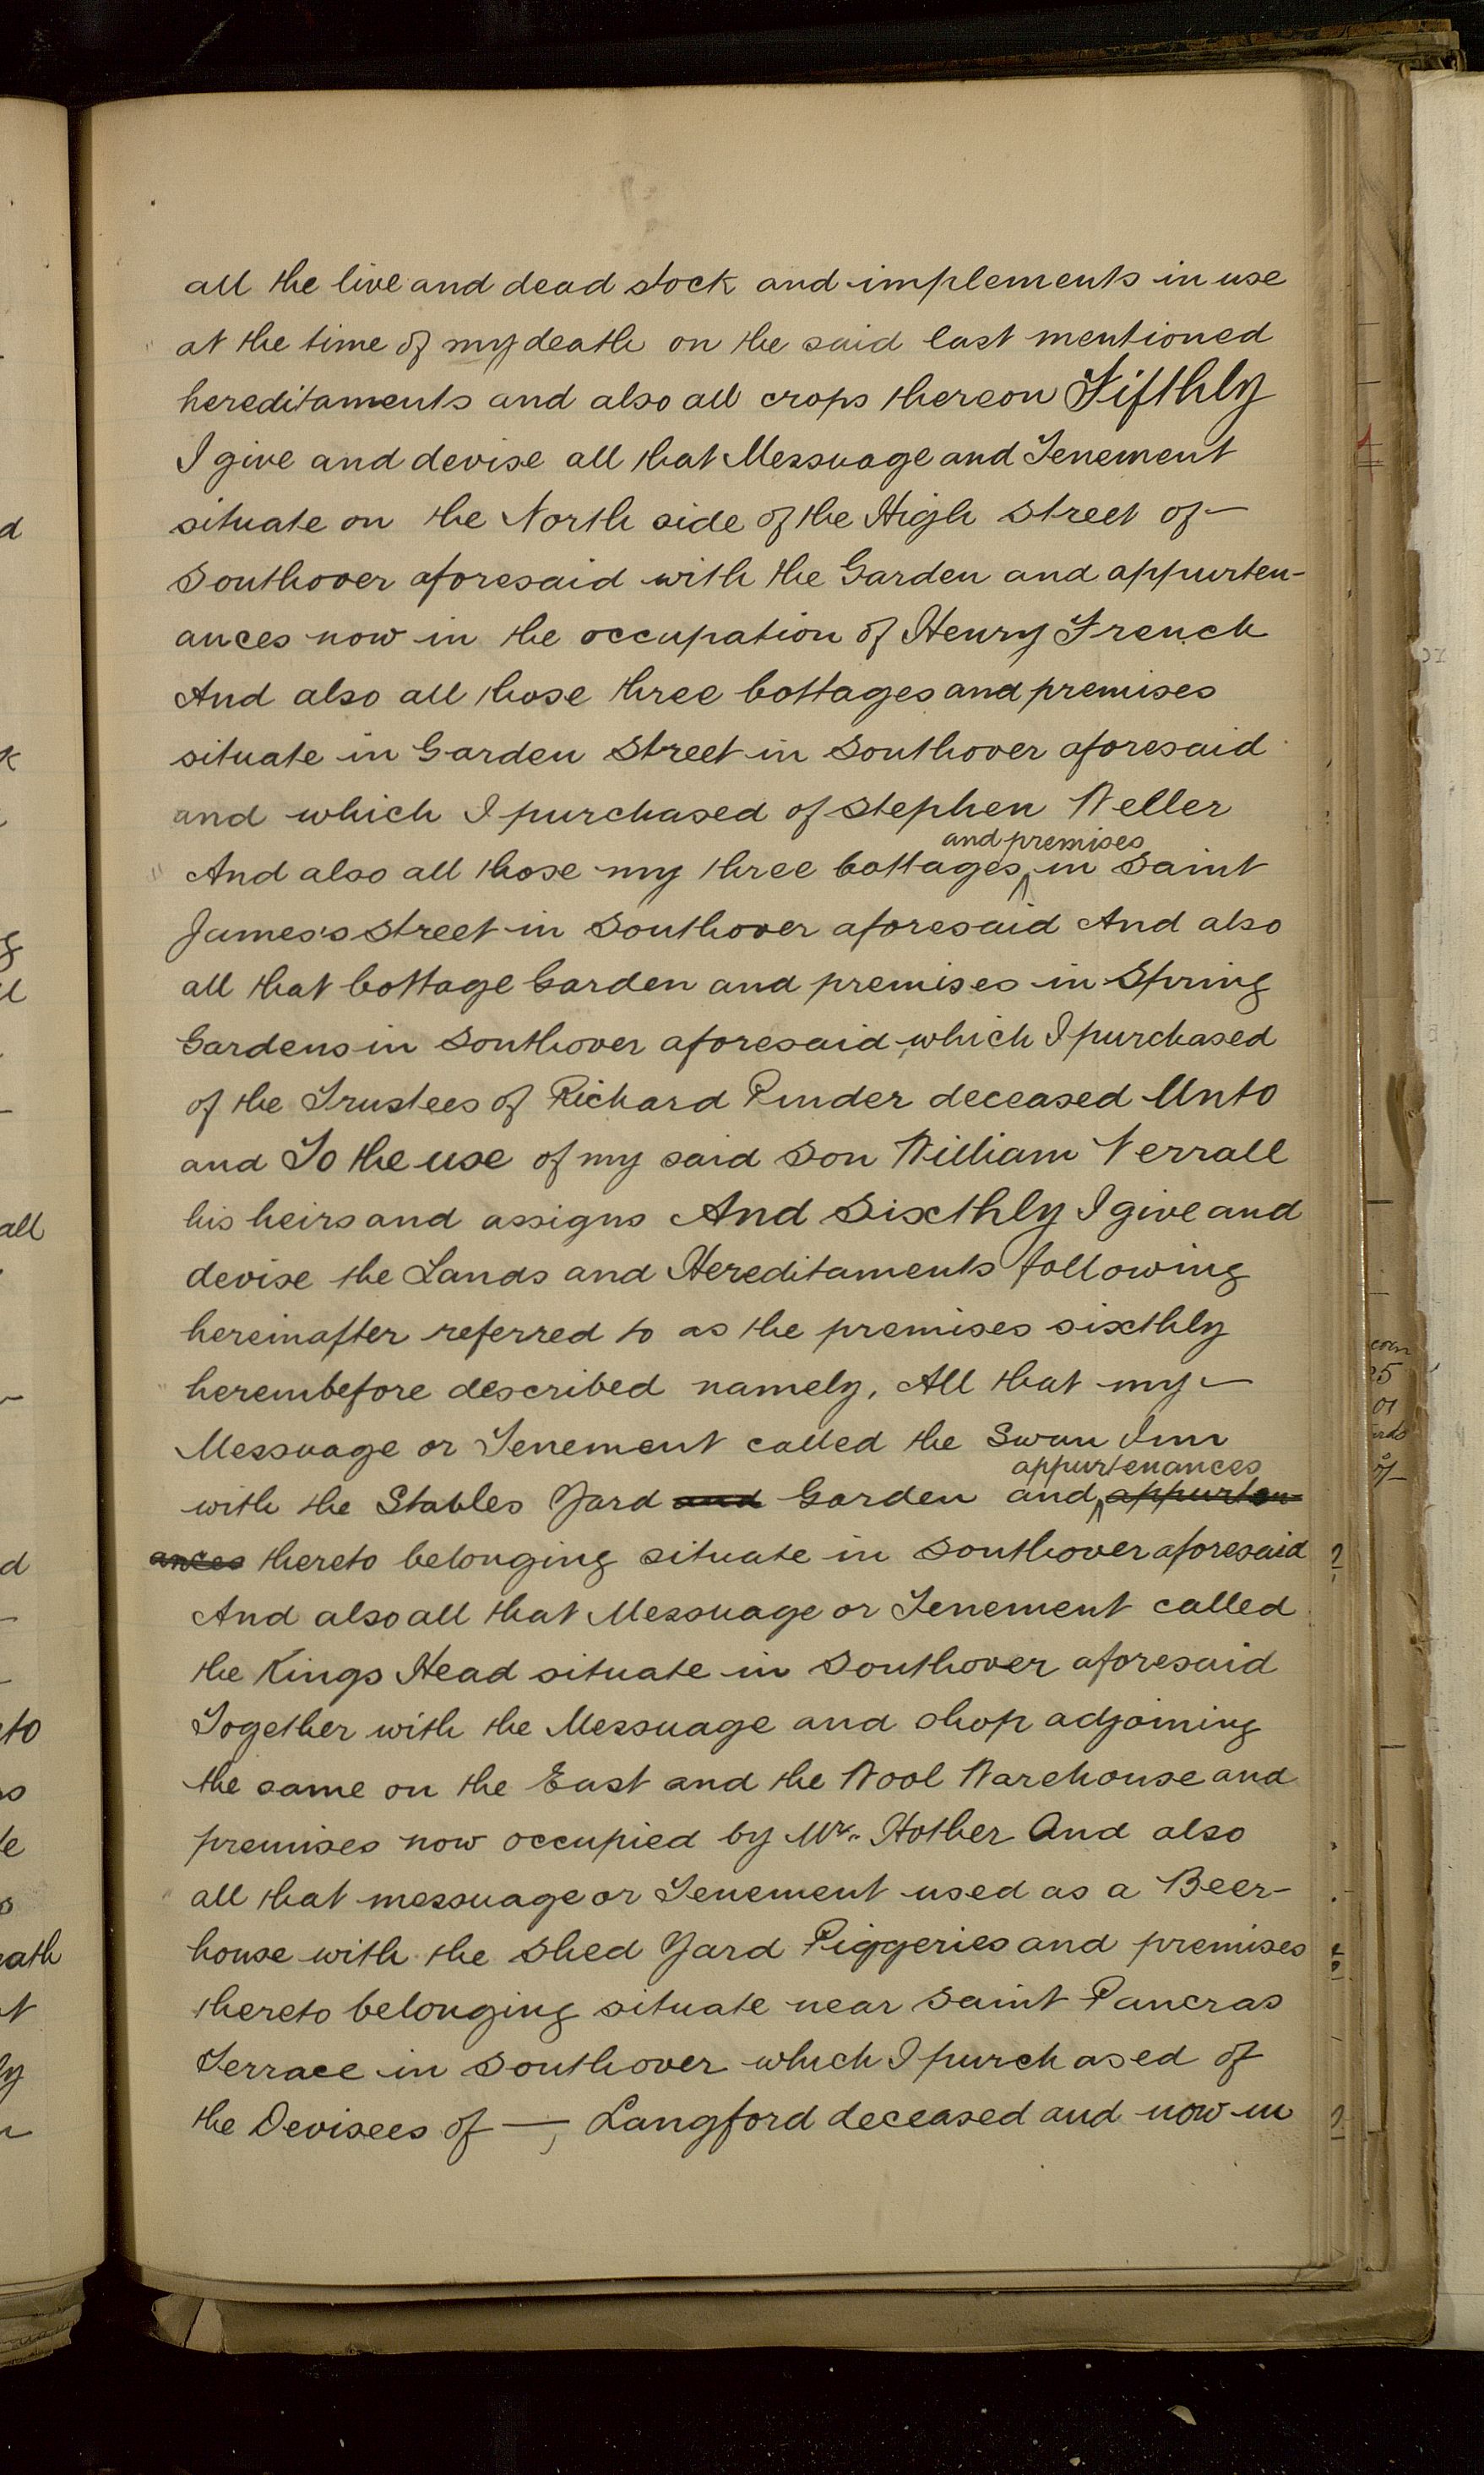 all the live and dead stock and implements in use
at the time of my death on the said last mentioned
hereditaments and also all crops thereon Fifthly
I give and devise all that Messuage and Tenement
situate on the North side of the High Street of —
Southover aforesaid with the Garden and appurten-
ances now in the occupation of Henry French
And also all those three Cottages and premises
situate in Garden Street in Southover aforesaid
and which I purchased of Stephen Weller
and premises
And also all those my three Cottages in Saint
James's Street in Southover aforesaid And also
all that Cottage Garden and premises in Spring
Gardens in Southover aforesaid which I purchased
of the Trustees of Richard Pinder deceased Unto
and To the use of my said Son William Verrall
his heirs and assigns And Sixthly I give and
devise the Lands and Hereditaments following
hereinafter referred to as the premises sixthly
hereinbefore described namely, All that my —
Messuage or Tenement called the Swan Inn
appurtenances
with the Stables Yard and Garden and appurten-
ances thereto belonging situate in Southover aforesaid
And also all that Messuage or Tenement called
the Kings Head situate in Southover aforesaid
Together with the Messuage and shop adjoining
the same on the East and the Wool Warehouse and
premises now occupied by Mr. Hother And also
all that messuage or Tenement used as a Beer-
house with the Shed Yard Piggeries and premises
thereto belonging situate near Saint Pancras
Terrace in Southover which I purchased of
the Devisees of — , Langford deceased and now in